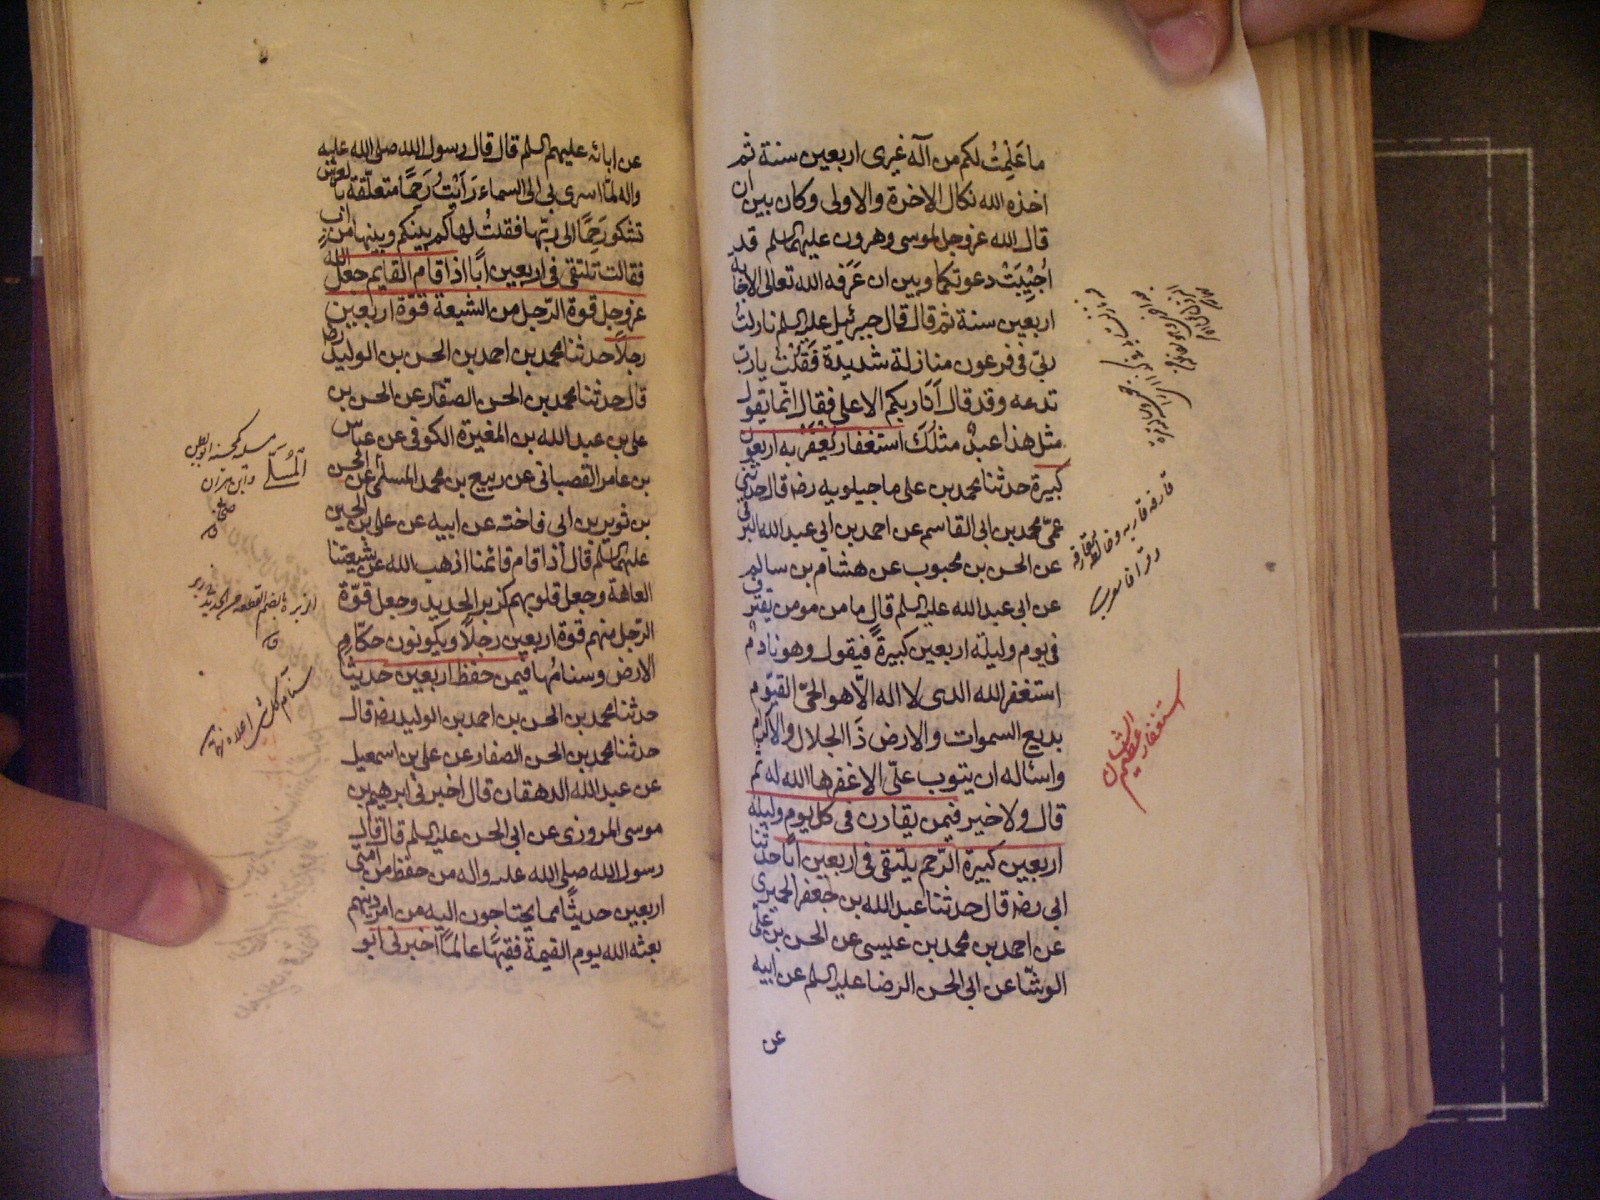 ما عَلِمتُ لكم من آله غيرى اربعين سنة ثم
اخذه الله نكال الاخرة والاولى وكان بين ان
قال الله عز وجل لموسى وهرون عليهما السلم قد
اُجِيْبَتْ دعوتكما وبين ان عَرَفه الله تعالى الاجابه
اربعين سنة ثم قال قال جبرئيل عليه السلم نازلتُ
ربّى فى فرعون منازلة شديدة فَقُلْتُ يا ربّ
تدعه وقد قال اَنَا ربكم الاعلى فقال انّما يقول
مثل هذا عبدٌ مثلك استغفار يُغْفَرُ به اربعون
كبيرة حدثنا محمد بن على ماجيلويه رضه قال حدثنى
عمّى محمد بن ابى القاسم عن احمد بن ابى عبد الله البرقى
عن الحسن بن محبوب عن هشام بن سالم
عن ابى عبد الله عليه السلم قال ما من مومن يقترف
فى يوم وليلة اربعين كبيرةً فيقول وهو نادمٌ
استغفر الله الذى لا اله الّا هو الحىّ القيّوم
بديع السموات والارض ذَا الجلال والاكرام
واسئاله ان يتوب علىّ الا غفرها الله له ثم
قال ولا خير فيمن يقارف فى كل يوم وليلة
اربعين كبيرة الرّحم يلتقى فى اربعين اَبًا حدثنا
ابى رضه قال حدثنا عبد الله بن جعفر الحميرى
عن احمد بن محمد بن عيسى عن الحسن بن على
الوشّا عن ابى الحسن الرضا عليه السلم عن ابيه
عن
استغفار عظيم الشان
عن ابائه عليهم السلم قال قال رسول الله صلى الله عليه
واله لمّا اسرى بى الى السماء رَاَيْتُ رَحِمًا متعلّقة بالعرش
تشكو رَحِمًا الى ربّها فقلتُ لها كم بينك وبينها من اب
فقالت تلتقى فى اربعين ابًا اذا قام القايم جعل الله
عز وجل قوة الرّجل من الشيعة قوّة اربعين
رجلًا حدثنا محمد بن احمد بن الحسن بن الوليد رضه
قال حدثنا محمد بن الحسن الصفّار عن الحسن بن
على بن عبد الله بن المغيرة الكوفى عن عباس
بن عامر القصبانى عن ربيع بن محمد المسلى عن الحسن
بن ثوير بن ابى فاخته عن ابيه عن على بن الحسين
عليهما السلم قال اذا قام قائمنا اذهب الله عن شيعتنا
العاهة وجعل قلوبهم كزبر الحديد وجعل قوّة
الرّجل منهم قوة اربعين رجلًا ويكونون حكّام
الارض وسنامُها فيمن حفظ اربعين حديثًا
حدثنا محمد بن الحسن بن احمد بن الوليد رضه قال
حدثنا محمد بن الحسن الصفار عن على بن اسمعيل
عن عبد الله الدهقان قال اخبرنى ابرهيم بن
موسى المروزى عن ابى الحسن عليه السلم قال قال
رسول الله صلى الله عليه واله من حفظ من امّتى
اربعين حديثًا مما يحتاجون اليه من امر دينهم
بعثه الله يوم القيمة فقيهًا عالمًا اخبرنى ابو
المُسَلّى